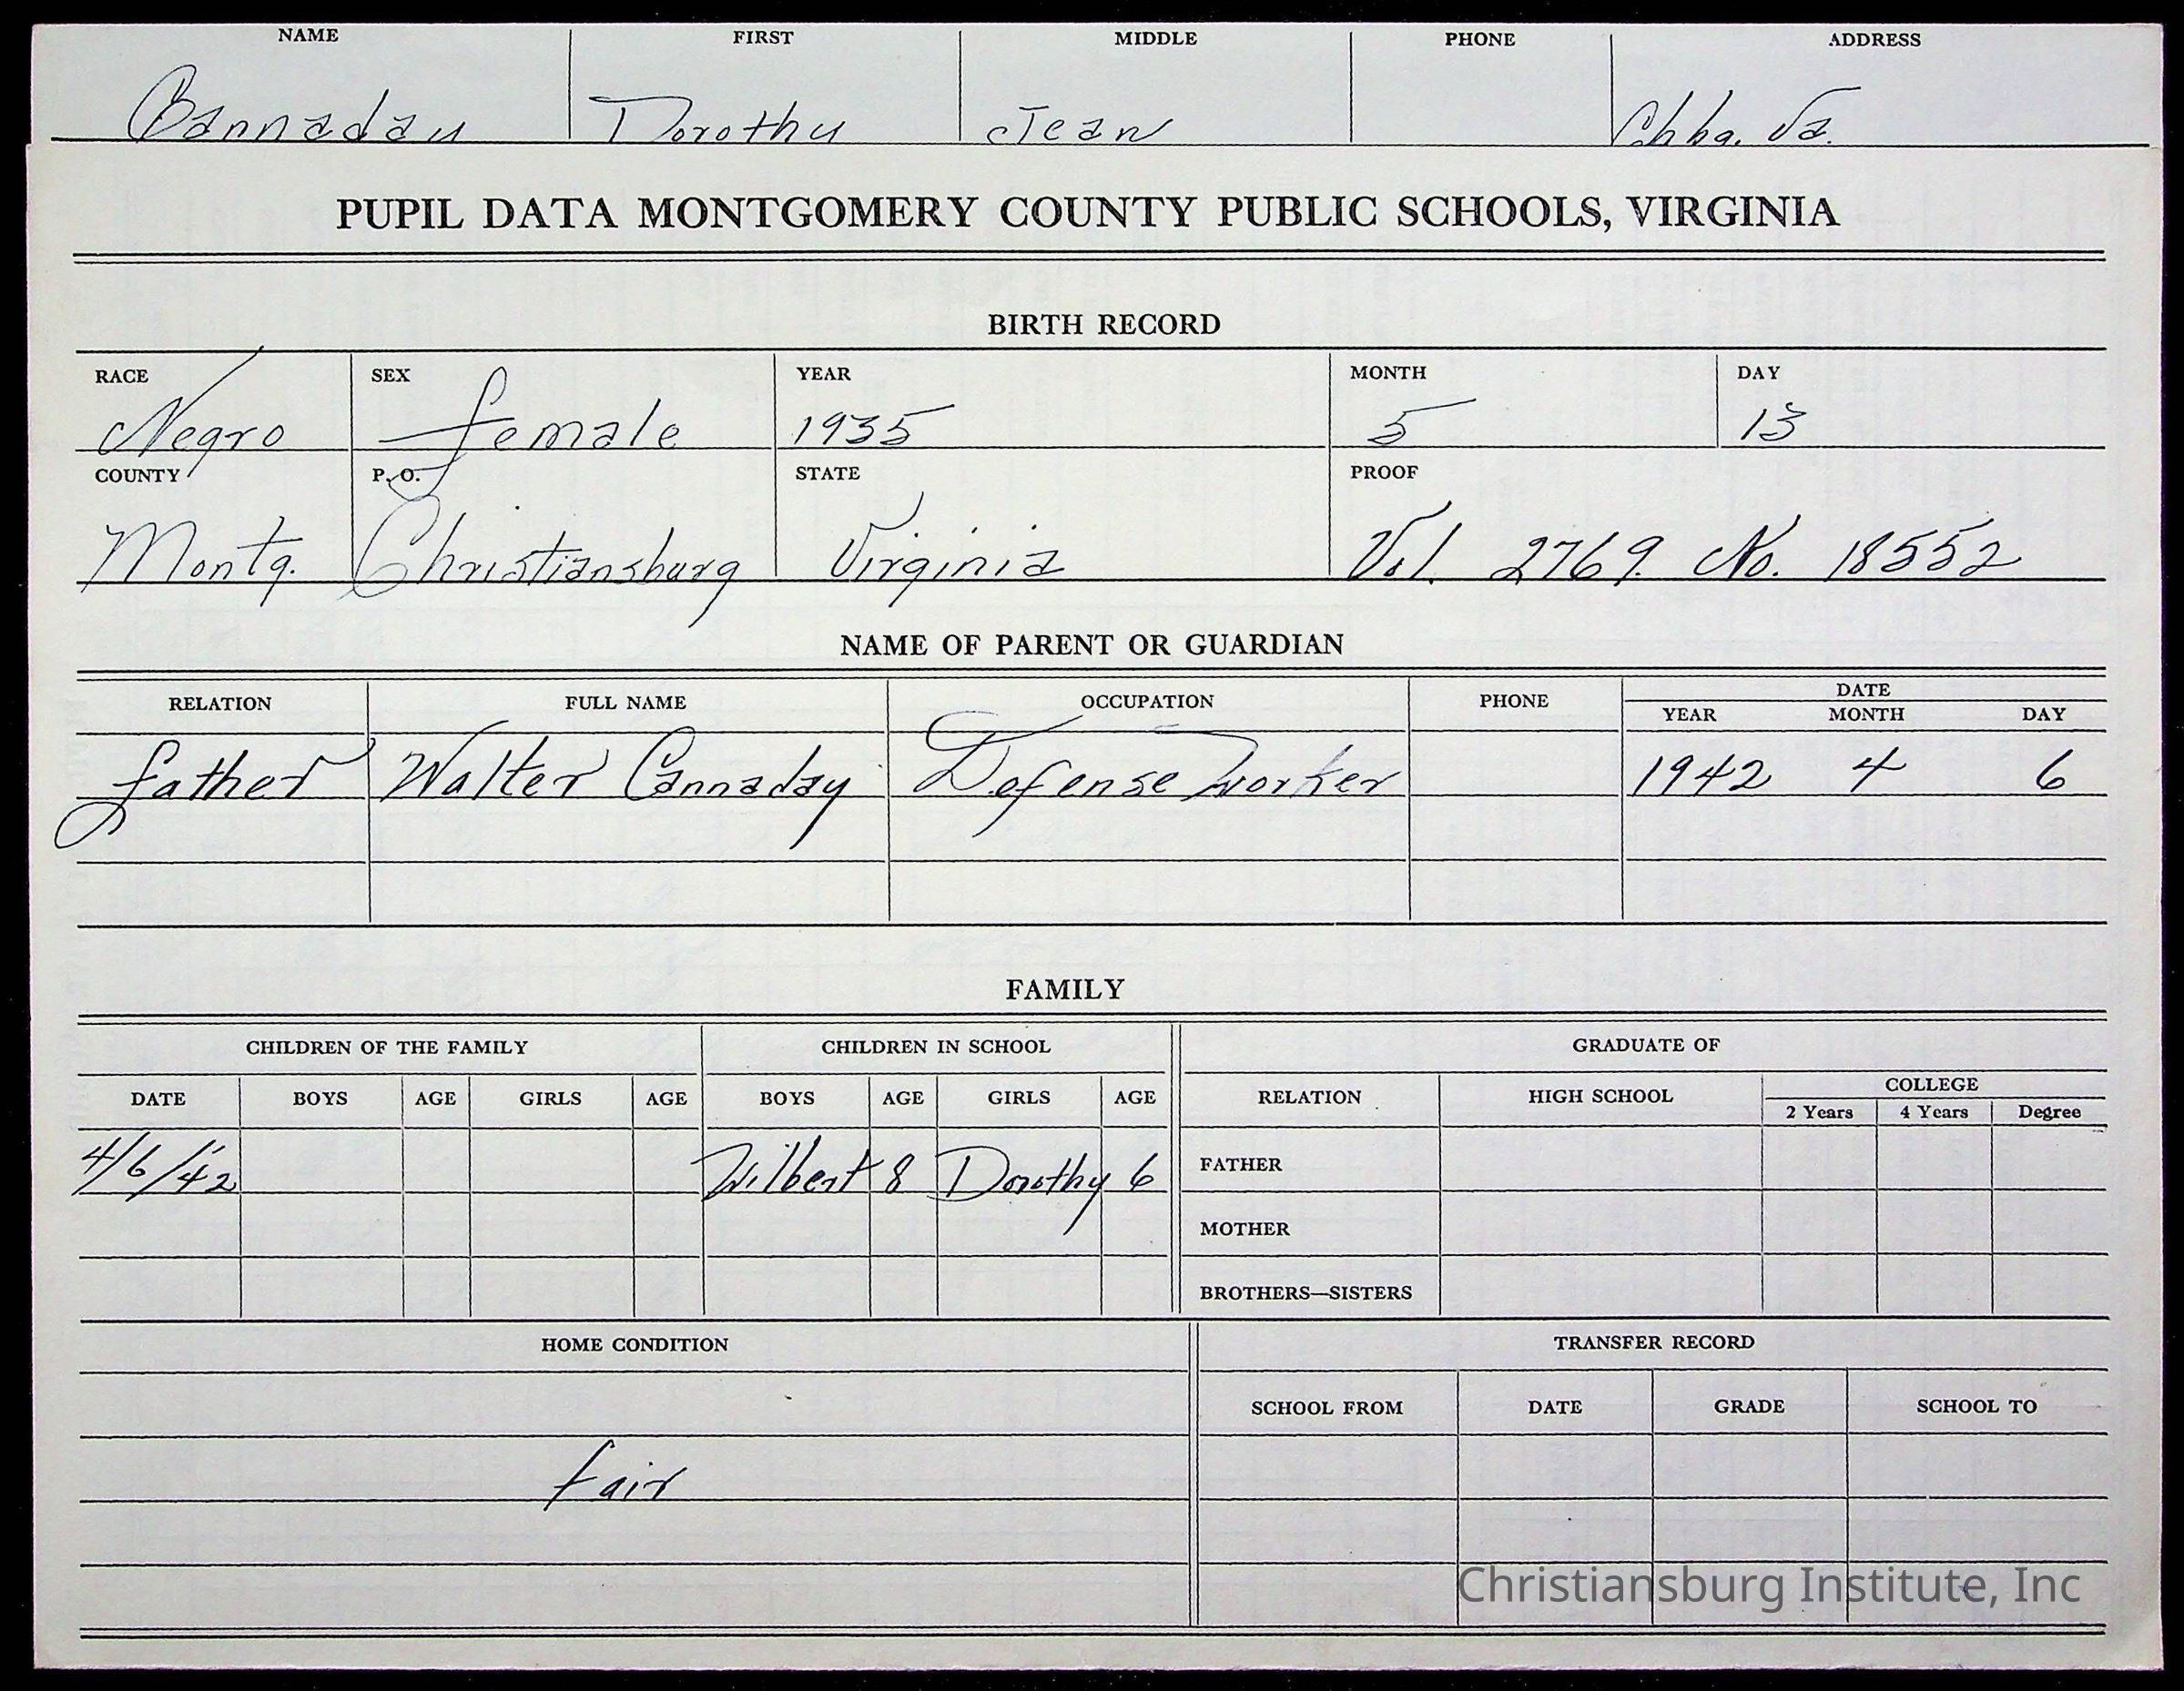 NAME FIRST MIDDLE PHONE ADDRESS
Cannaday Dorothy Jean Chbg. Va.
PUPIL DATA MONTGOMERY COUNTY PUBLIC SCHOOLS, VIRGINIA
BIRTH RECORD
RACE SEX YEAR MONTH DAY
Negro female 1935 5 13
COUNTY P. O. STATE PROOF
Montg. Christiansburg Virginia Vol. 2769. No. 18552
NAME OF PARENT OR GUARDIAN
RELATION FULL NAME OCCUPATION PHONE DATE
YEAR MONTH DAY
father Walter Cannaday Defense worker 1942 4 6
FAMILY
CHILDREN OF THE FAMILY CHILDREN IN SCHOOL GRADUATE OF
DATE BOYS AGE GIRLS AGE BOYS AGE GIRLS AGE RELATION HIGH SCHOOL COLLEGE
2 Years 4 Years Degree
4/6/'42 Wilbert 8 Dorothy 6 FATHER
MOTHER
BROTHERS—SISTERS
HOME CONDITION TRANSFER RECORD
SCHOOL FROM DATE GRADE SCHOOL TO
fair
Christiansburg Institute, Inc